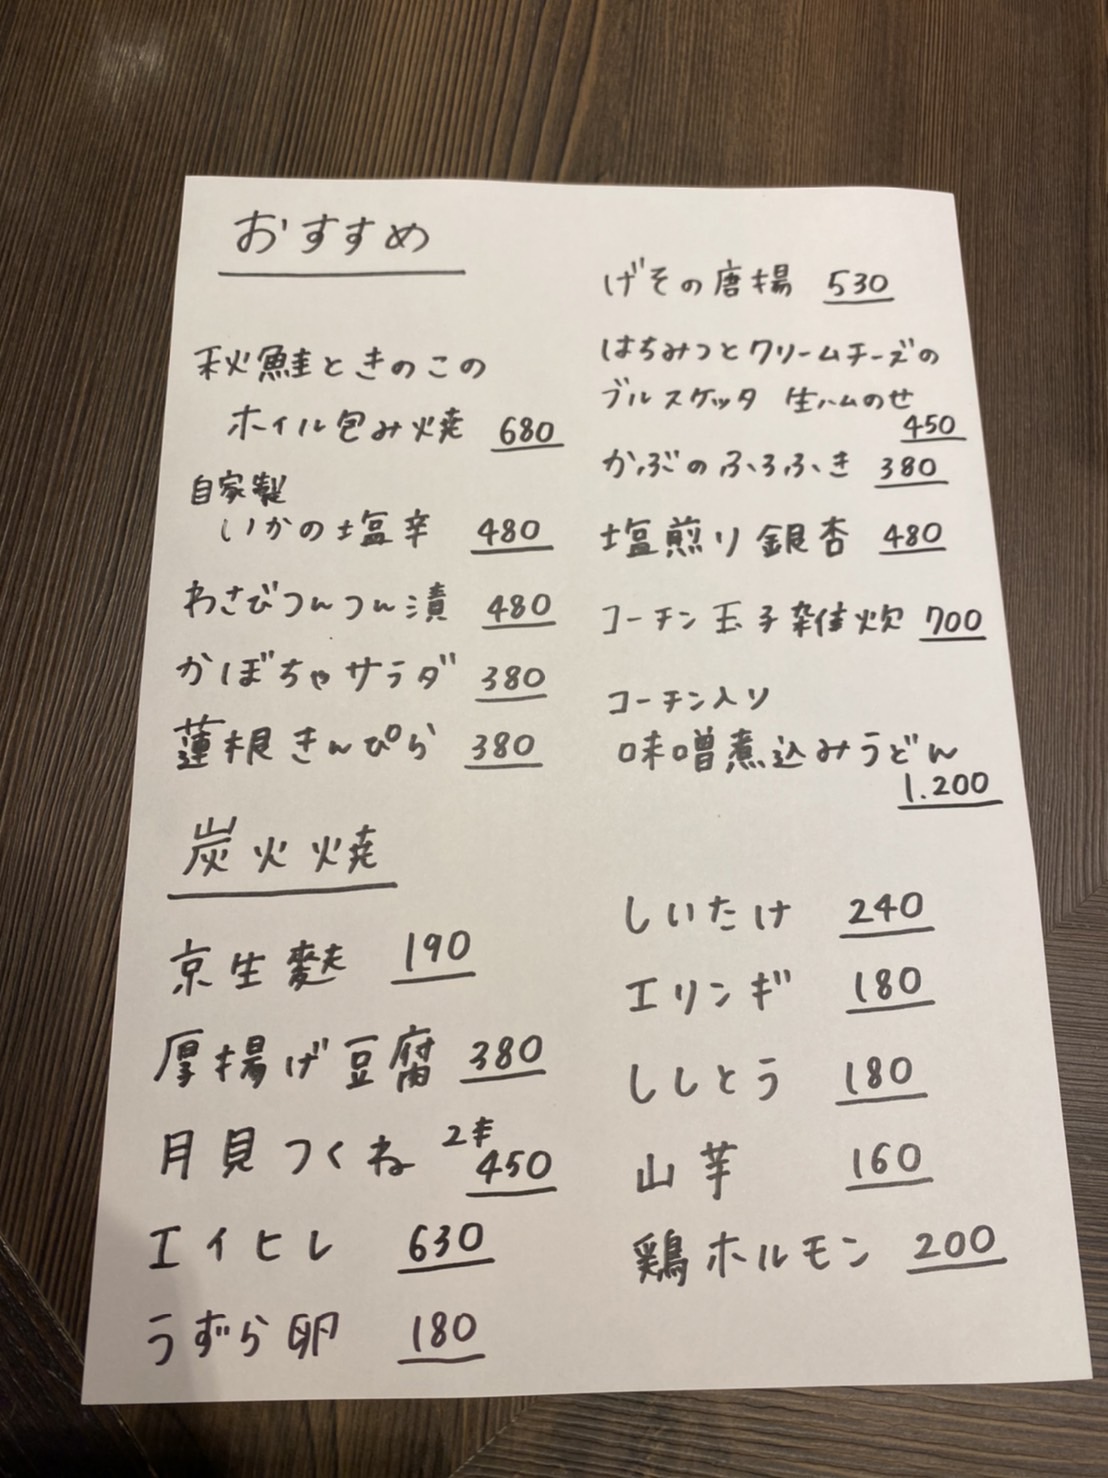 おすすめ
秋鮭ときのこの
ホイル包み焼 680
自家製
いかの塩辛 480
わさびつんつん漬 480
かぼちゃサラダ 380
蓮根きんぴら 380
げその唐揚 530
はちみつとクリームチーズの
ブルスケッタ 生ハムのせ
450
かぶのふろふき 380
塩煎り銀杏 480
コーチン玉子雑炊 700
コーチン入り
味噌煮込みうどん
1.200
炭火焼
京生麩 190
厚揚げ豆腐 380
月見つくね 2本
450
エイヒレ 630
うずら卵 180
しいたけ 240
エリンギ 180
ししとう 180
山芋 160
鶏ホルモン 200